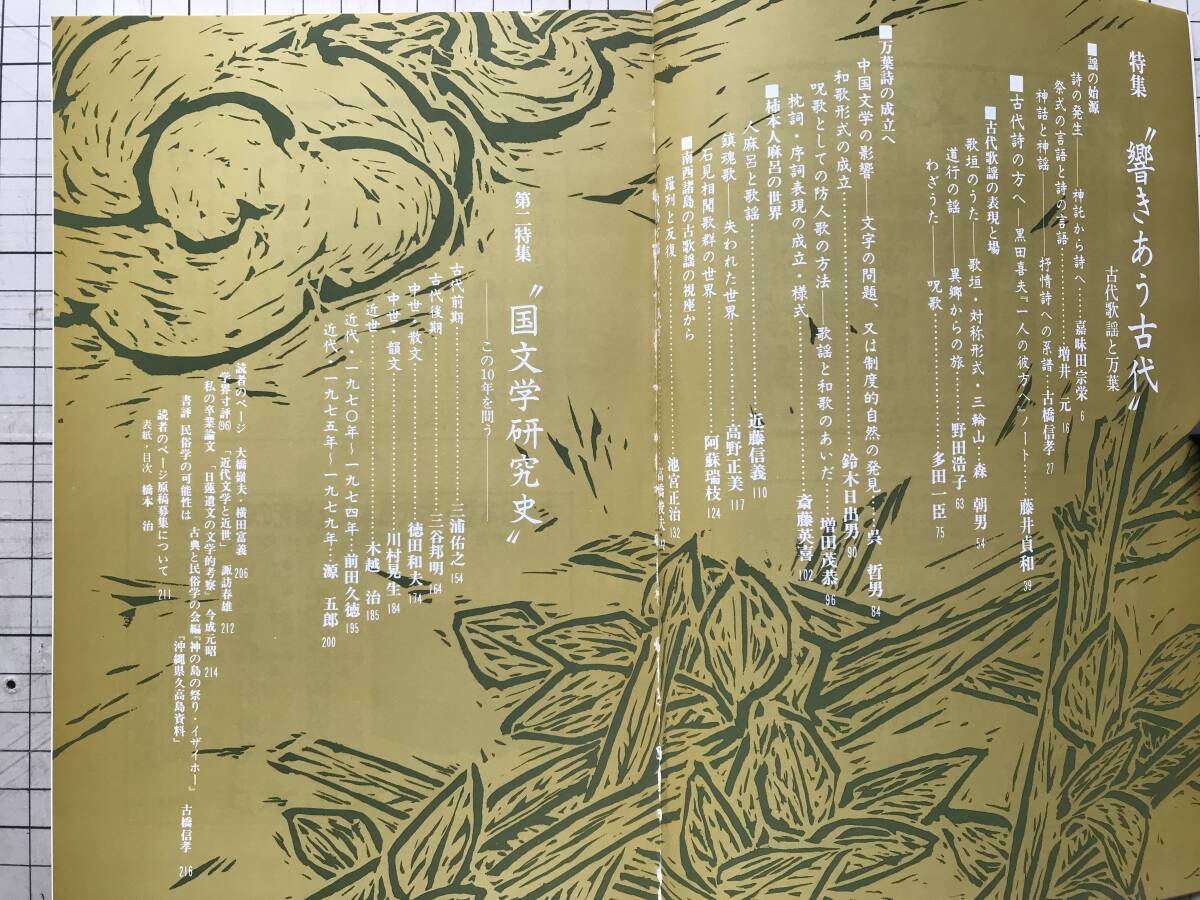 特集 〝響きあう古代〟
古代歌謡と万葉
■謡の始源
詩の発生――神託から詩へ……嘉味田宗栄 6
祭式の言語と詩の言語……増井 元 16
神話と神謡――抒情詩への系譜…古橋信孝 27
■古代詩の方へ―黒田喜夫『一人の彼方へ』ノート……藤井貞和 39
■古代歌謡の表現と場
歌垣のうた――歌垣・対称形式・三輪山…森 朝男 54
道行の謡――異郷からの旅……野田浩子 63
わざうた――呪歌……多田一臣 75
■万葉詩の成立へ
中国文学の影響――文字の問題、又は制度的自然の発見……呉 哲男 84
和歌形式の成立……鈴木日出男 90
呪歌としての防人歌の方法――歌謡と和歌のあいだ…増田茂恭 96
枕詞・序詞表現の成立・様式……斎藤英喜 102
■柿本人麻呂の世界
人麻呂と歌謡……近藤信義 110
鎮魂歌――失われた世界……高野正美 117
石見相聞歌群の世界……阿蘇瑞枝 124
■南西諸島の古歌謡の視座から
羅列と反復……池宮正治 132
第二特集 〝国文学研究史〟
――この10年を問う――
古代前期……三浦佑之 154
古代後期……三谷邦明 164
中世・散文……徳田和夫 174
中世・韻文……川村晃生 184
近世……木越 治 185
近代・一九七〇年～一九七四年…前田久徳 195
近代・一九七五年～一九七九年…源 五郎 200
読者のページ 大橋嶺夫 横田富義 206
学界寸評(96) 「近代文学と近世」 諏訪春雄 212
私の卒業論文 「日蓮遺文の文学的考察」 今成元昭 214
書評 民俗学の可能性は 古典と民俗学の会編『神の島の祭り・イザイホー』
『沖縄県久高島資料』 古橋信孝 216
読者のページ原稿募集について 211
表紙・目次 橋本 治